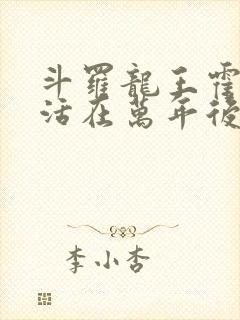 斗羅龍王霍
活在萬年後
李小杏